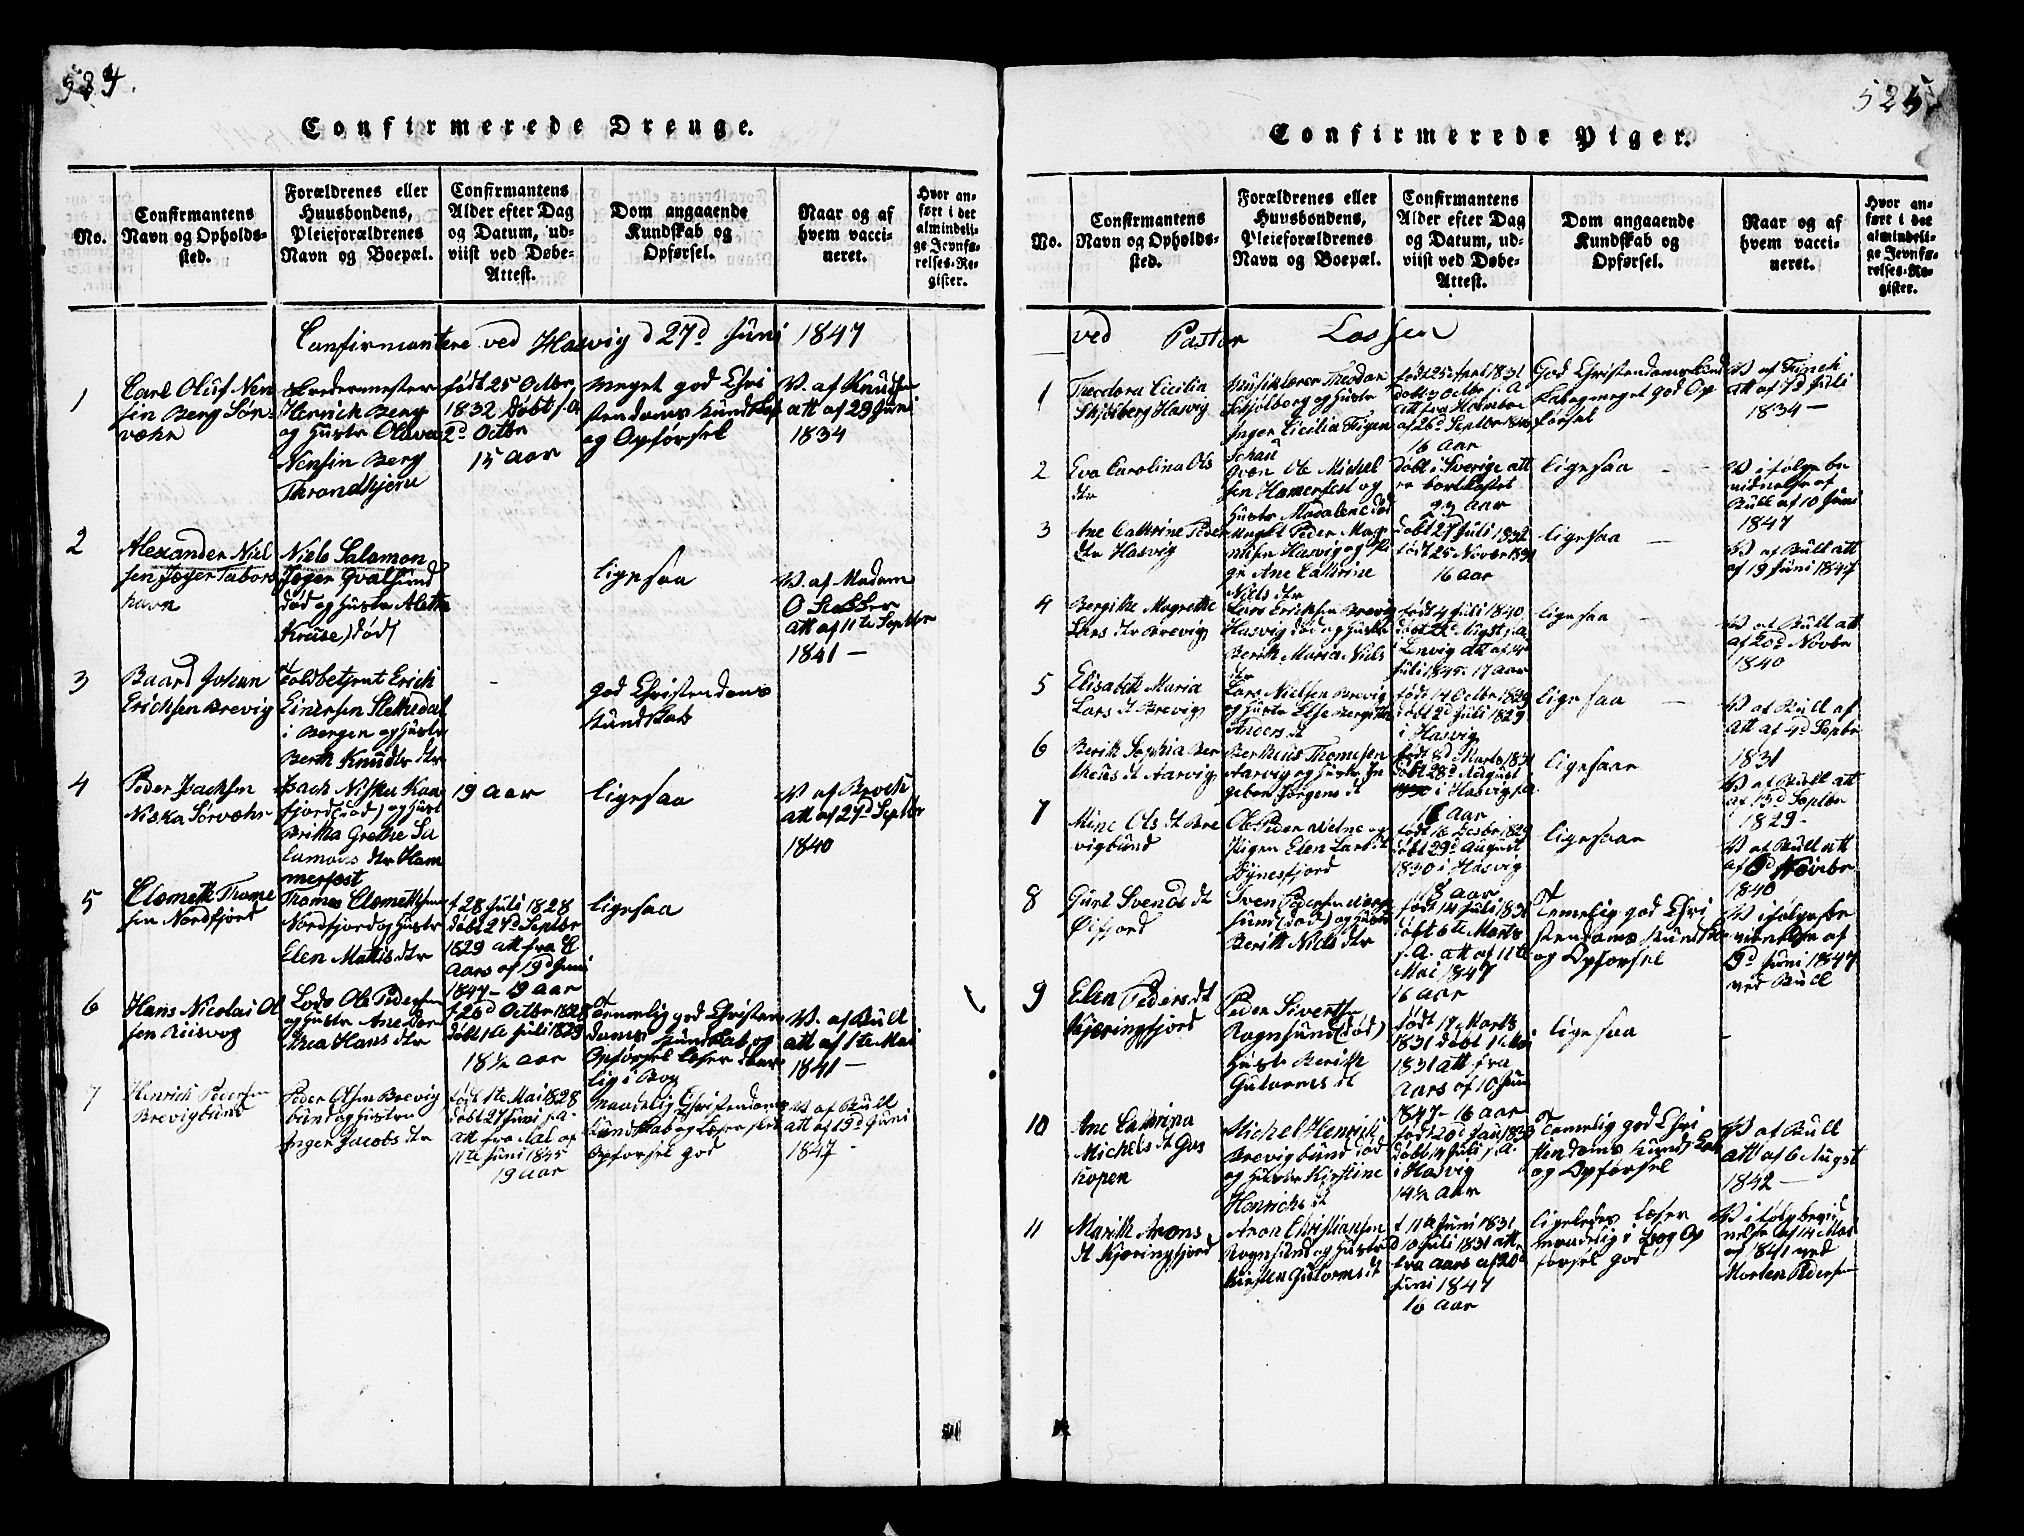 524.
Confirmerede Drenge.
No.
Confirmantens
Navn og Opholds-
sted.
Forældrenes eller
Huusbondens,
Pleieforældrenes
Navn og Boepæl.
Confirmantens
Alder efter Dag
og Datum, ud-
viist ved Døbe-
Attest.
Dom angaaende
Kundskab og
Opførsel.
Naar og af
hvem vacci-
neret.
Hvor an-
ført i det
almindeli-
ge Jevnfø-
relses-Re-
gister.
Confirmantere ved Hasvig d 27d Juni 1847
1
Carl Oluf Nen
sin Berg Sør-
væhr
Hinrich Berg
og Hustr Oliva
Nensin Berg
Throndhjem
født 25 Octbr
1832 Døbt s.A
2d Octbr
15 aar
Meget god Chri
stendoms Kundskab
og Opførsel
V. af Knudsen
att af 29 Juni
1834
2
Alexander Niel
sen Jæger Tabors
havn
Niels Salamon
Jæger Qvalsund
død og Hustr Alette
Kruse) død/
ligesaa
V. af Madam
att af 11te Septbr
1841 –
3
Baard Johan
Erichsen Brevig
Toldbetjent Erich
Einersen Slettedal
i Bergen og Hustr
Berth Knuds dtr
god Christendoms
Kundskab
4
Peder Isachsen
Niska Sørvæhr
Isach Niska Kaa
fjord (død) og Hust
Britha Grethe Sa
lamons dtr Ham
merfest
19 aar
ligesaa
V. af Broch
att af 27d Septbr
1840
5
Clemeth Thome
sen Nordfjord
Thomes Clemethsen
Nordfjord og Hustr
Elen Mattis dtr
f 28 Juli 1828
døbt 27d Septbr
1829 att fra
Aars af 19d Juni
1847 – 19 aar
ligesaa
6
Hans Nicolai Ol
sen Riisvog
Lods Ole Pedersen
og Hustr Ane Dor
thea Hans dtr
f 26d Octbr 1828
døbt 1te Juli 1829
18½ aar
Temmelig god Christen
doms Kundskab og
Opførsel læser daar
lig i Bog
V. af Bull
att af 1te Mai
1841 –
7
Henrich Pedersen
Brevigbund
Peder Olsen Brevig
bund og Hustru
Inger Jacobs dtr
født 1te Mai 1828
døbt 27 Juni s.A.
att fra Nal af
11te Juni 1845
19 aar
Maadelig Christendoms
Kundskab og læser slet
Opførsel god
V. af Bull
att af 19d Juni
1847 –
525.
Confirmerede Piger.
No.
Confirmantens
Navn og Opholds-
sted.
Forældrenes eller
Huusbondens,
Pleieforældrenes
Navn og Boepæl.
Confirmantens
Alder efter Dag
og Datum, ud-
viist ved Døbe-
Attest.
Dom angaaende
Kundskab og
Opførsel.
Naar og af
hvem vacci-
neret.
Hvor an-
ført i det
almindeli-
ge Jevnfø-
relses-Re-
gister.
ved Pastor Lassen
1
Theodora Cicilia
Skjølberg Hasvig
Schjølberg og Hustr
Inger Cicilia Figen
Schau
født 25 April 1831
16 aar
God Christendoms Kund
skab og meget god Op
førsel
V. af Finch
att af 7d Juli
1834 –
2
Eva Carolina Ols
dtr
Qvæn Ole Michel
sen Hamerfest og
Hustr Madalene død
Døbt i Sverige att
er bortkastet
22 aar
ligesaa
V ifølge be
vidnelse af
Bull af 10 Juni
1847
3
Ane Cathrine Peder
dtr Hasvig
Ungkl Peder Mag
nusen Hasvig og Pi
ge Ane Cathrine
Niels dtr
døbt 27 Juli 1832
født 25 Novbr 1831
16 aar
ligesaa
V. af Bull att
af 19 Juni 1847
4
Bergithe Magrethe
Lars dtr Brevig
Lars Erichsen Brevig
Hasvig død og Hustr
Berith Maria Niels
dtr
født 4 Juli 1840
Juli 1845. 17 aar
ligesaa
V. af Bull att
af 20d Novbr
1840
5
Elisabeth Maria
Lars dt Brevig
Lars Nielsen Brevig
og Hustr Else Bergitte
Anders dt
født 14 Octbr 1829
døbt 2d Juli 1829
i Hasvig
ligesaa
V. af Bull af
att af 4d Septbr
1831
6
Berith Sophia Ber
theus dt Aarvig
Bertheus Thomesen
Aarvig og Hustr In
gebor Jørgens dt
født 8d Marts 1831
døbt 28d August
i Hasvig s.A.
16 aar
ligesaa
V. af Bull att
af 15d Septbr
1829 –
7
Mine Ols dt Bre
vigbund
Ole Peder Nielne og
Pigen Elen Lars dt
Øynesfjord
født 16 Desbr 1829
døbt 29d August
1830 i Hasvig
18 aar
ligesaa
V. af Bull att
af Novbr
1840
8
Guri Svends dt
Øifjord
Sven Pedersen
sund (død) og Hustr
Berith Niels dtr
født 14 Juli 1831
døbt 6te Marts
s.A. att af 11te
Mai 1847
16 aar
Temelig god Chri
stendoms Kundskab
og Opførsel
V. ifølge be
vidnelse af
9d Juni 1847
ved Bull
9
Elen Peders dt
Kjæringfjord
Peder Sivertsen
Rognsund (død)
Hustr Berith
Gutorms dt
født 17 Marts
1831 døbt 1 Mai
1831 att fra
Aars af 10 Juni
1847 – 16 aar
ligesaa
10
Ane Cathrina
Michels dt Gaas
hopen
Michel Henrich
Brevigbund død
og Hustr Kirstine
Henrichs dt
født 20d Jan 1833
døbt 14 Juli s.A.
i Hasvig
14½ aar
Temelig god Chri
stendoms Kundskab
og Opførsel
V. af Bull
att af 6 Augst
1842 –
11
Marith Arons
dt Kjæringfjord
Aron Christiansen
Rognsund og Hustr
Kirsten Gutorms dt
f 11te Juni 1831
d 10 Juli 1831 att
fra Aars af 20d
Juni 1847
16 aar
ligeledes læser
maadelig i Bog Op
førsel god
V ifølge bevid
nelse af 14 Mai
af 1841 ved
Morten Pedersen